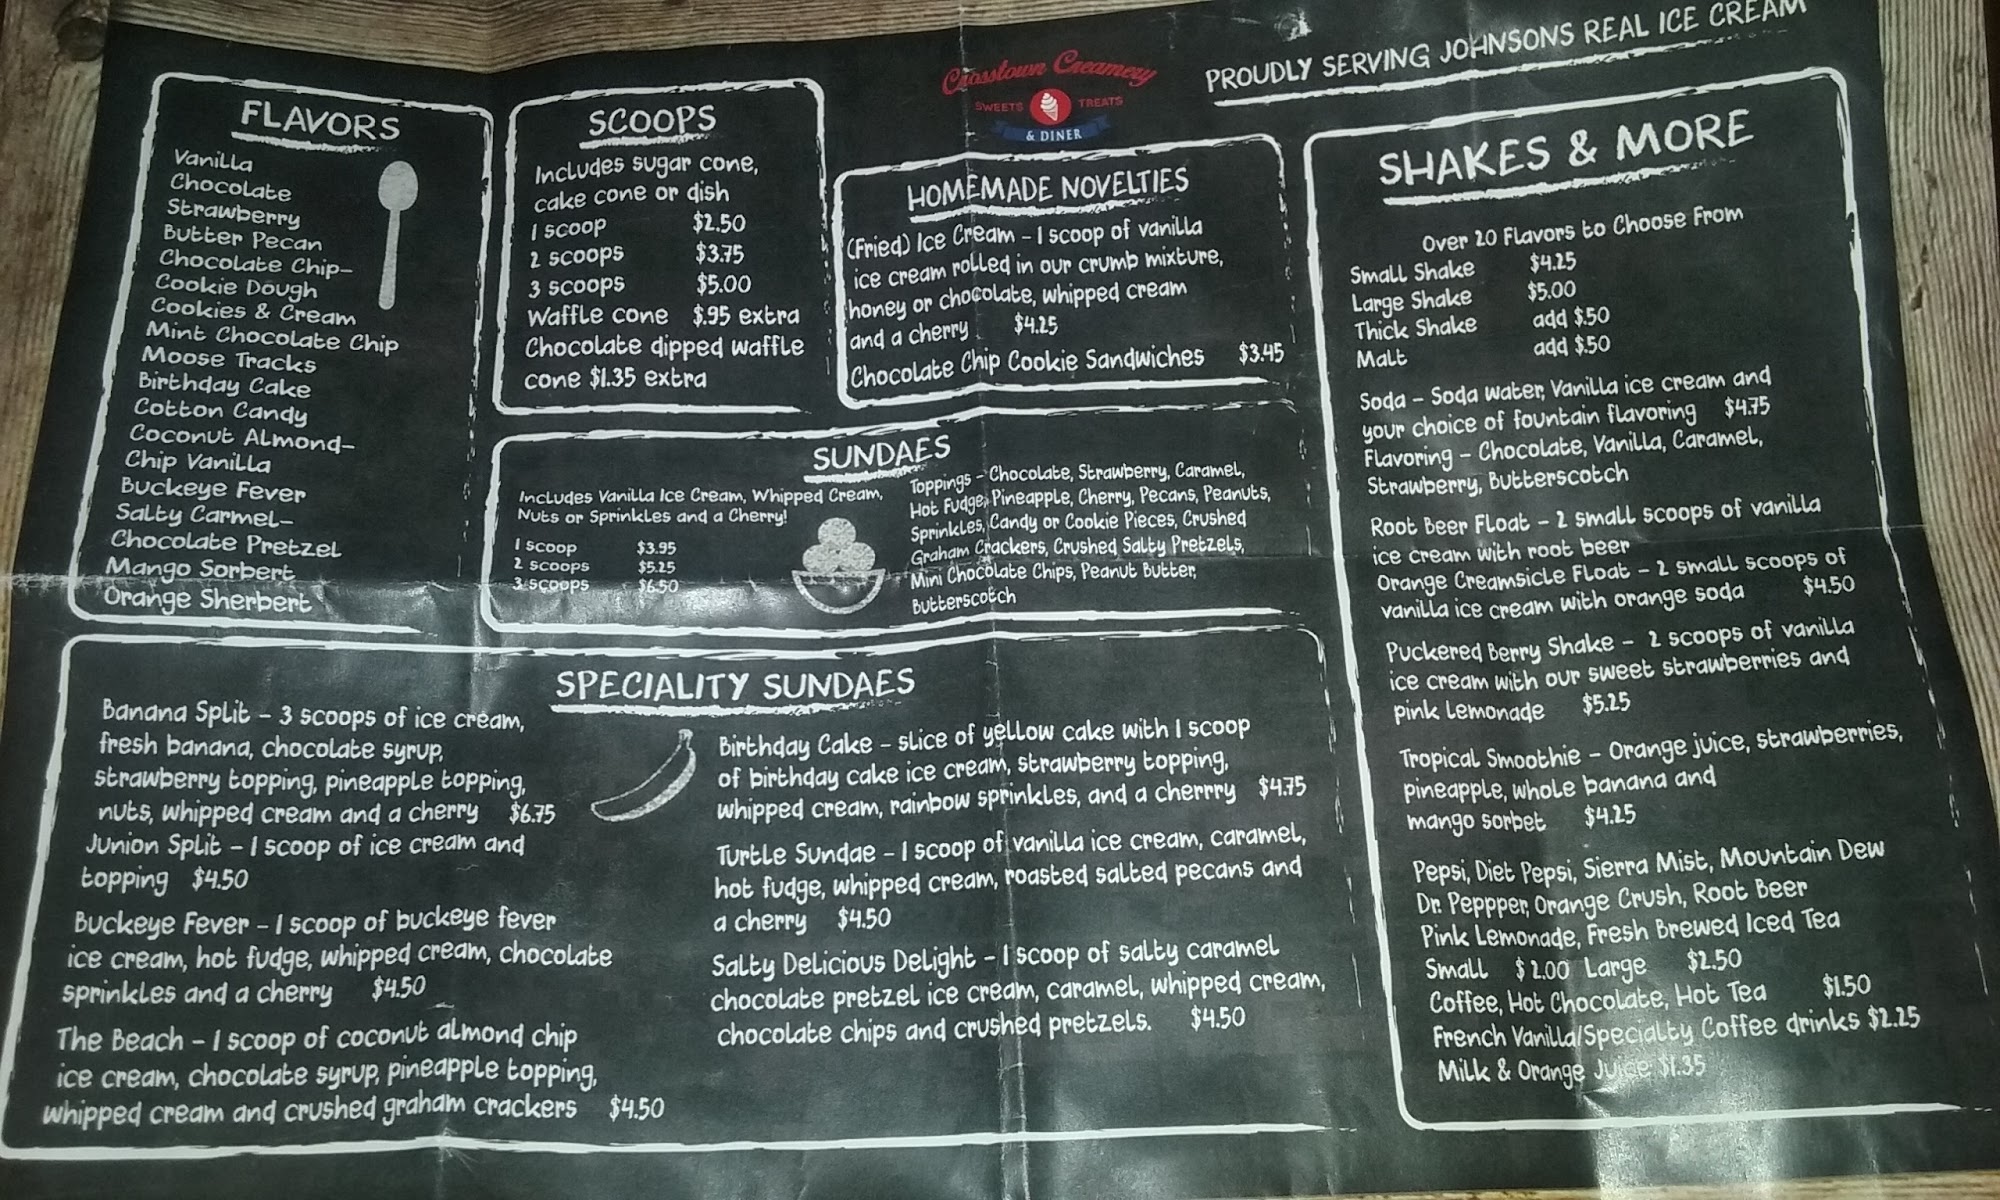 Crosstown Creamery
SWEETS TREATS
& DINER
PROUDLY SERVING JOHNSONS REAL ICE CREAM
FLAVORS
Vanilla
Chocolate
Strawberry
Butter Pecan
Chocolate Chip-
Cookie Dough
Cookies & Cream
Mint Chocolate Chip
Moose Tracks
Birthday Cake
Cotton Candy
Coconut Almond-
Chip Vanilla
Buckeye Fever
Salty Carmel-
Chocolate Pretzel
Mango Sorbert
Orange Sherbert
SCOOPS
Includes sugar cone,
cake cone or dish
1 scoop $2.50
2 scoops $3.75
3 scoops $5.00
Waffle cone $.95 extra
Chocolate dipped waffle
cone $1.35 extra
HOMEMADE NOVELTIES
(Fried) Ice Cream - 1 scoop of vanilla
ice cream rolled in our crumb mixture,
honey or chocolate, whipped cream
and a cherry $4.25
Chocolate Chip Cookie Sandwiches $3.45
SUNDAES
Includes Vanilla Ice Cream, Whipped Cream,
Nuts or Sprinkles and a Cherry!
1 scoop $3.95
2 scoops $5.25
3 scoops $6.50
Toppings - Chocolate, Strawberry, Caramel,
Hot Fudge, Pineapple, Cherry, Pecans, Peanuts,
Sprinkles, Candy or Cookie Pieces, Crushed
Graham Crackers, Crushed Salty Pretzels,
Mini Chocolate Chips, Peanut Butter,
Butterscotch
SPECIALITY SUNDAES
Banana Split - 3 scoops of ice cream,
fresh banana, chocolate syrup,
strawberry topping, pineapple topping,
nuts, whipped cream and a cherry $6.75
Junion Split - 1 scoop of ice cream and
topping $4.50
Buckeye Fever - 1 scoop of buckeye fever
ice cream, hot fudge, whipped cream, chocolate
sprinkles and a cherry $4.50
The Beach - 1 scoop of coconut almond chip
ice cream, chocolate syrup, pineapple topping,
whipped cream and crushed graham crackers $4.50
Birthday Cake - slice of yellow cake with 1 scoop
of birthday cake ice cream, strawberry topping,
whipped cream, rainbow sprinkles, and a cherrry $4.75
Turtle Sundae - 1 scoop of vanilla ice cream, caramel,
hot fudge, whipped cream, roasted salted pecans and
a cherry $4.50
Salty Delicious Delight - 1 scoop of salty caramel
chocolate pretzel ice cream, caramel, whipped cream,
chocolate chips and crushed pretzels. $4.50
SHAKES & MORE
Over 20 Flavors to Choose From
Small Shake $4.25
Large Shake $5.00
Thick Shake add $.50
Malt add $.50
Soda - Soda water, Vanilla ice cream and
your choice of fountain flavoring $4.75
Flavoring - Chocolate, Vanilla, Caramel,
Strawberry, Butterscotch
Root Beer Float - 2 small scoops of vanilla
ice cream with root beer
Orange Creamsicle Float - 2 small scoops of
vanilla ice cream with orange soda $4.50
Puckered Berry Shake - 2 scoops of vanilla
ice cream with our sweet strawberries and
pink lemonade $5.25
Tropical Smoothie - Orange juice, strawberries,
pineapple, whole banana and
mango sorbet $4.25
Pepsi, Diet Pepsi, Sierra Mist, Mountain Dew
Dr. Peppper, Orange Crush, Root Beer
Pink Lemonade, Fresh Brewed Iced Tea
Small $2.00 Large $2.50
Coffee, Hot Chocolate, Hot Tea $1.50
French Vanilla/Specialty Coffee drinks $2.25
Milk & Orange Juice $1.35